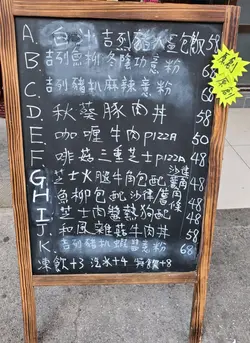 A. 吉列豬扒蛋包飯 58
B. 吉列魚柳冬陰功意粉 68
C. 吉列豬扒麻辣意粉 68
D. 秋葵豚肉丼 58
E. 咖喱牛肉PIZZA 50
F. 啡菇三重芝士PIZZA 48
G. 芝士火腿牛角包配沙律 薯角 48
H. 魚柳包配沙律/薯條 48
I. 芝士肉醬熱狗配 48
J. 和風雜菇牛肉丼 58
K. 吉列豬扒蝦醬意粉 68
凍飲+3 汽水+4 +8